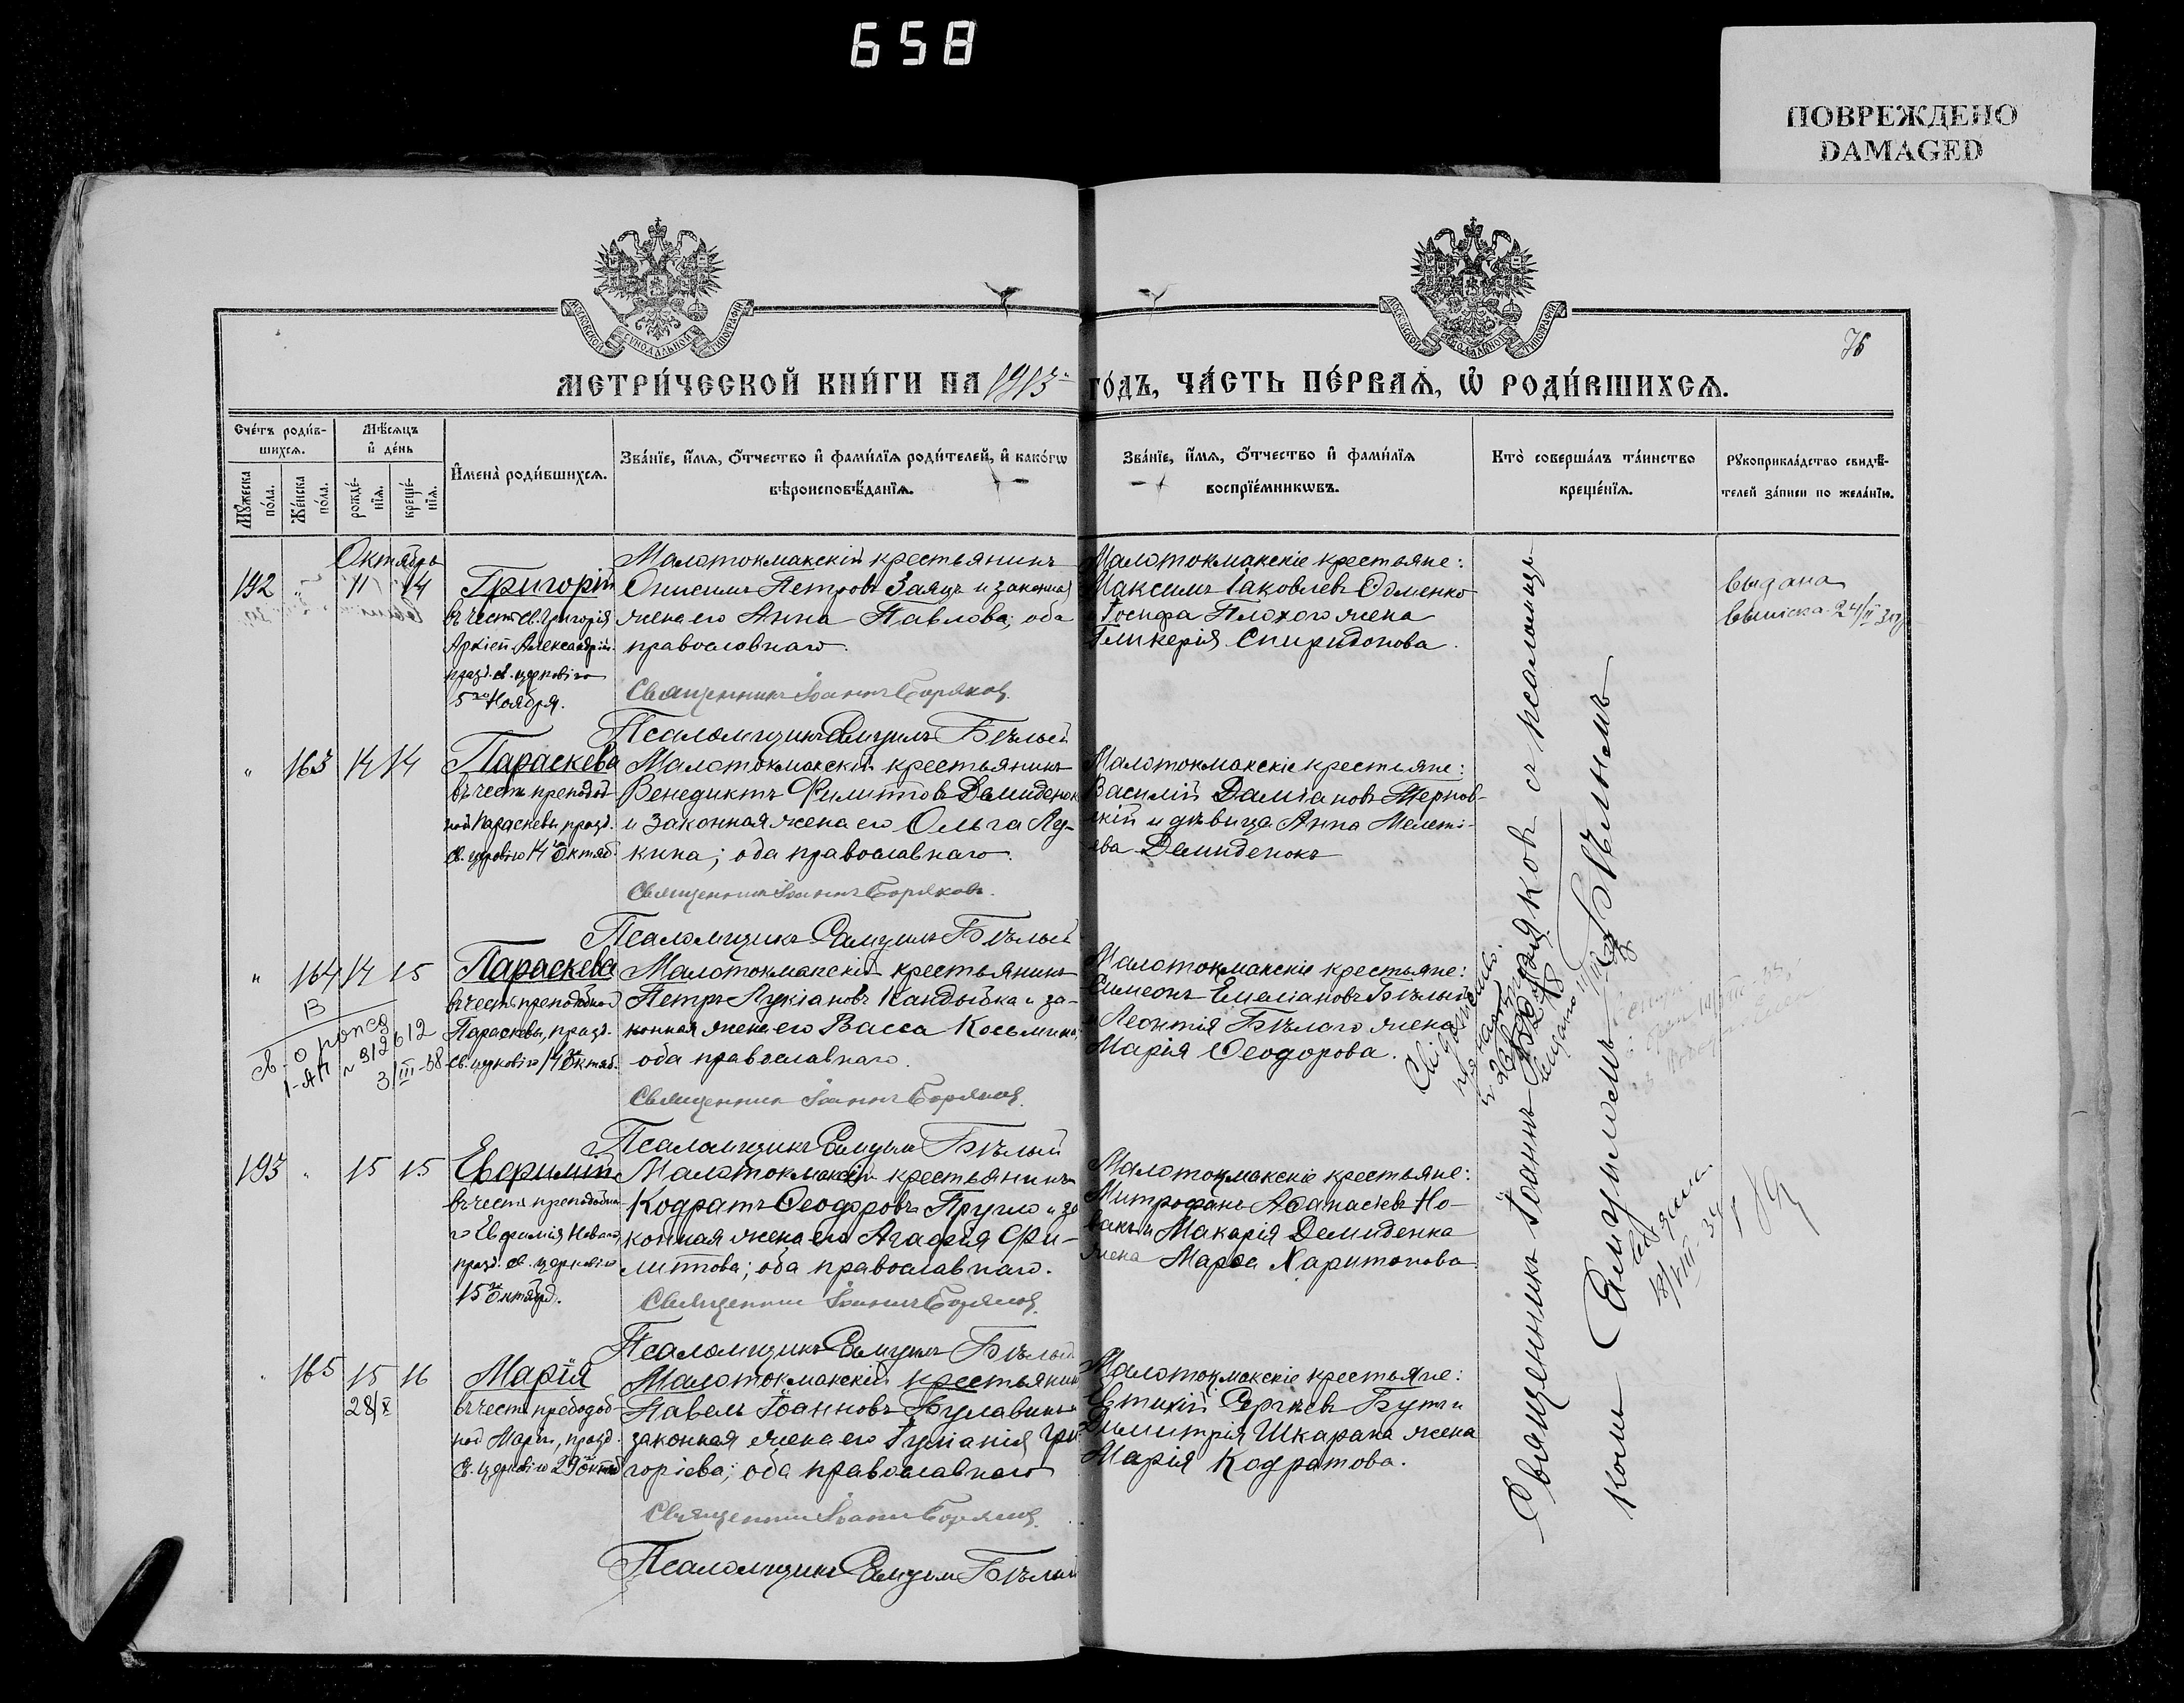 658
ПОВРЕЖДЕНО
DAMAGED
МОСКОВСКОЙ СѴНОДАЛЬНОЙ ТИПОГРАФІИ
МОСКОВСКОЙ СѴНОДАЛЬНОЙ ТИПОГРАФІИ
76
МЕТРИ́ЧЕСКОЙ КНИ́ГИ НА 1913 ГО́ДЪ, ЧА́СТЬ ПЕ́РВАѦ, Ѡ҆ РОДИ́ВШИХСѦ.
Сче́тъ роди́в-
шихсѧ.
Мꙋ́жеска по́ла.
Же́нска по́ла.
Мѣ́сѧцъ и҆ де́нь
рожде́-
нїѧ.
креще́-
нїѧ.
И҆мена̀ роди́вшихсѧ.
Зва́нїе, и҆́мѧ, ѻ҆́тчество и҆ фами́лїѧ роди́телей, и҆ како́гѡ
вѣроисповѣ́данїѧ.
Зва́нїе, и҆́мѧ, ѻ҆́тчество и҆ фами́лїѧ
воспрїе́мникѡвъ.
Кто̀ соверша́лъ та́инство
креще́нїѧ.
Рꙋкоприкла́дство свидѣ́-
телей за́писи по жела́нїю.
Октябрь
192 " 11 14
Григорій
въ честь св. Григорія
Архіеп. Александрій.
празд. св. церковію
5го Ноября.
Малотокмакскій крестьянинъ
Онисимъ Петровъ Заяцъ и законная
жена его Анна Павлова; оба
православнаго.
Священникъ Іоаннъ Боряковъ
Псаломщикъ Бѣлый
Малотокмакскіе крестьяне:
Максимъ Іаковлевъ Одменко
Іосифа Плохого жена
Гликерія Спиридонова.
выдана
выписка 24/II
" 163 14 14
Параскева
въ честь преподоб-
ной Параскевы, празд.
св. церковію 14го Октяб.
Малотокмакскій крестьянинъ
Венедиктъ Филипповъ Демиденок
и законная жена его Ольга Лу-
кина; оба православнаго.
Священникъ Іоаннъ Боряковъ.
Псаломщикъ Бѣлый
Малотокмакскіе крестьяне:
Василій Даміановъ Тернов-
скій и дѣвица Анна Мелеті-
ева Демиденокъ
" 164 14 15
Параскева
въ честь преподобной
Параскевы, празд.
св. церковію 14го Октяб.
312612
3/III-38
Малотокмакскій крестьянинъ
Петръ Лукіановъ Кандыбка и за-
конная жена его Васса Косьмина;
оба православнаго.
Священникъ Іоаннъ Боряковъ
Псаломщикъ Бѣлый
Малотокмакскіе крестьяне:
Симеонъ Емеліановъ Бѣлый
Леонтія Бѣлаго жена
Марія Ѳеодорова.
193 " 15 15
Евфимій
въ честь преподобна-
го Евфимія Новаго,
празд. св. церковію
15го Октября.
Малотокмакскій крестьянинъ
Кодратъ Ѳеодоровъ Пругло и за
конная жена его Агафія Фи-
липпова; оба православнаго.
Священникъ Іоаннъ Боряковъ
Псаломщикъ Бѣлый
Малотокмакскіе крестьяне:
Митрофанъ Аѳанасіевъ Но-
вакъ и Макарія Демиденка
жена Марѳа Харитонова
" 165 15 16
28/X
Марія
въ честь преподоб-
ной Маріи, празд.
св. церковію 29го Октяб
Малотокмакскій крестьянинъ
Павелъ Іоанновъ Булавинъ и
законная жена его Іуліанія Гри-
горіева; оба православнаго
Священникъ Іоаннъ Боряковъ
Псаломщикъ Бѣлый
Малотокмакскіе крестьяне:
Евтихій Сергіевъ Бутъ и
Димитрія Шкарапа жена
Марія Кодратова.
Священникъ Іоаннъ Боряковъ съ псаломщи-
комъ Бѣлымъ